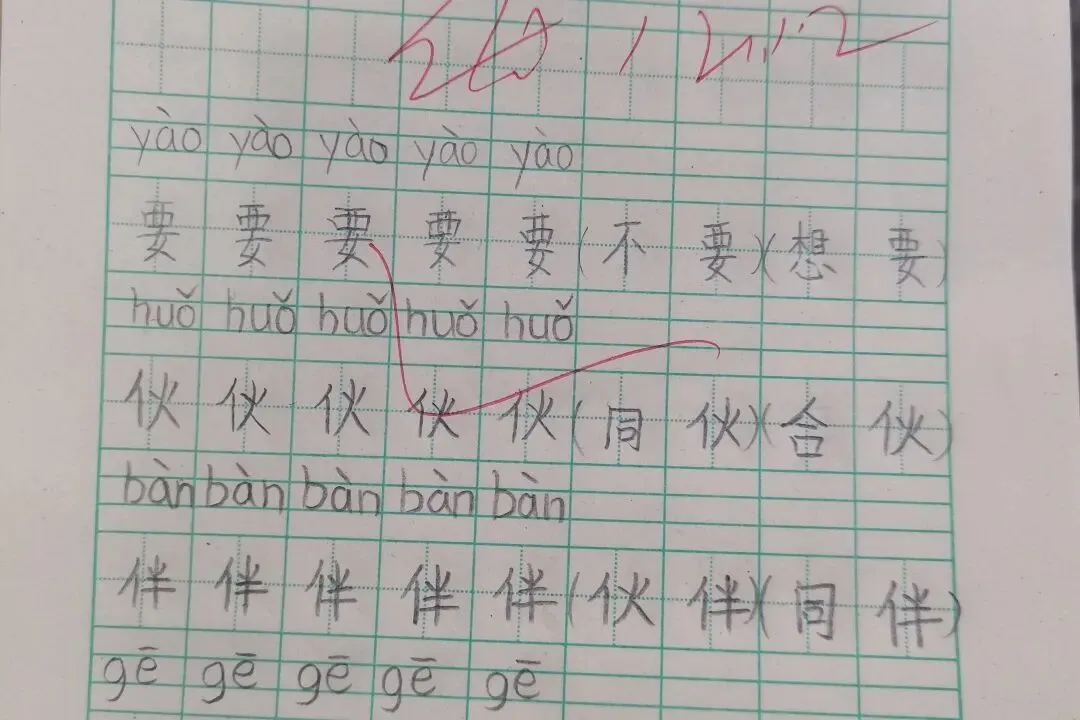 yào yào yào yào yào
要 要 要 要 要(不 要)(想 要)
huǒ huǒ huǒ huǒ huǒ
伙 伙 伙 伙 伙(同 伙)(合 伙)
bàn bàn bàn bàn bàn
伴 伴 伴 伴 伴(伙 伴)(同 伴)
gē gē gē gē gē